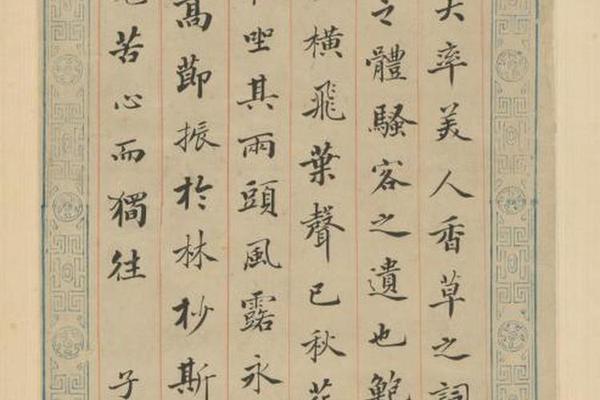 大率美人香草之詞
之體騷客之遺也
橫飛葉聲已秋花
坐其兩頭風露永
高節振於林杪斯
苦心而獨往 子